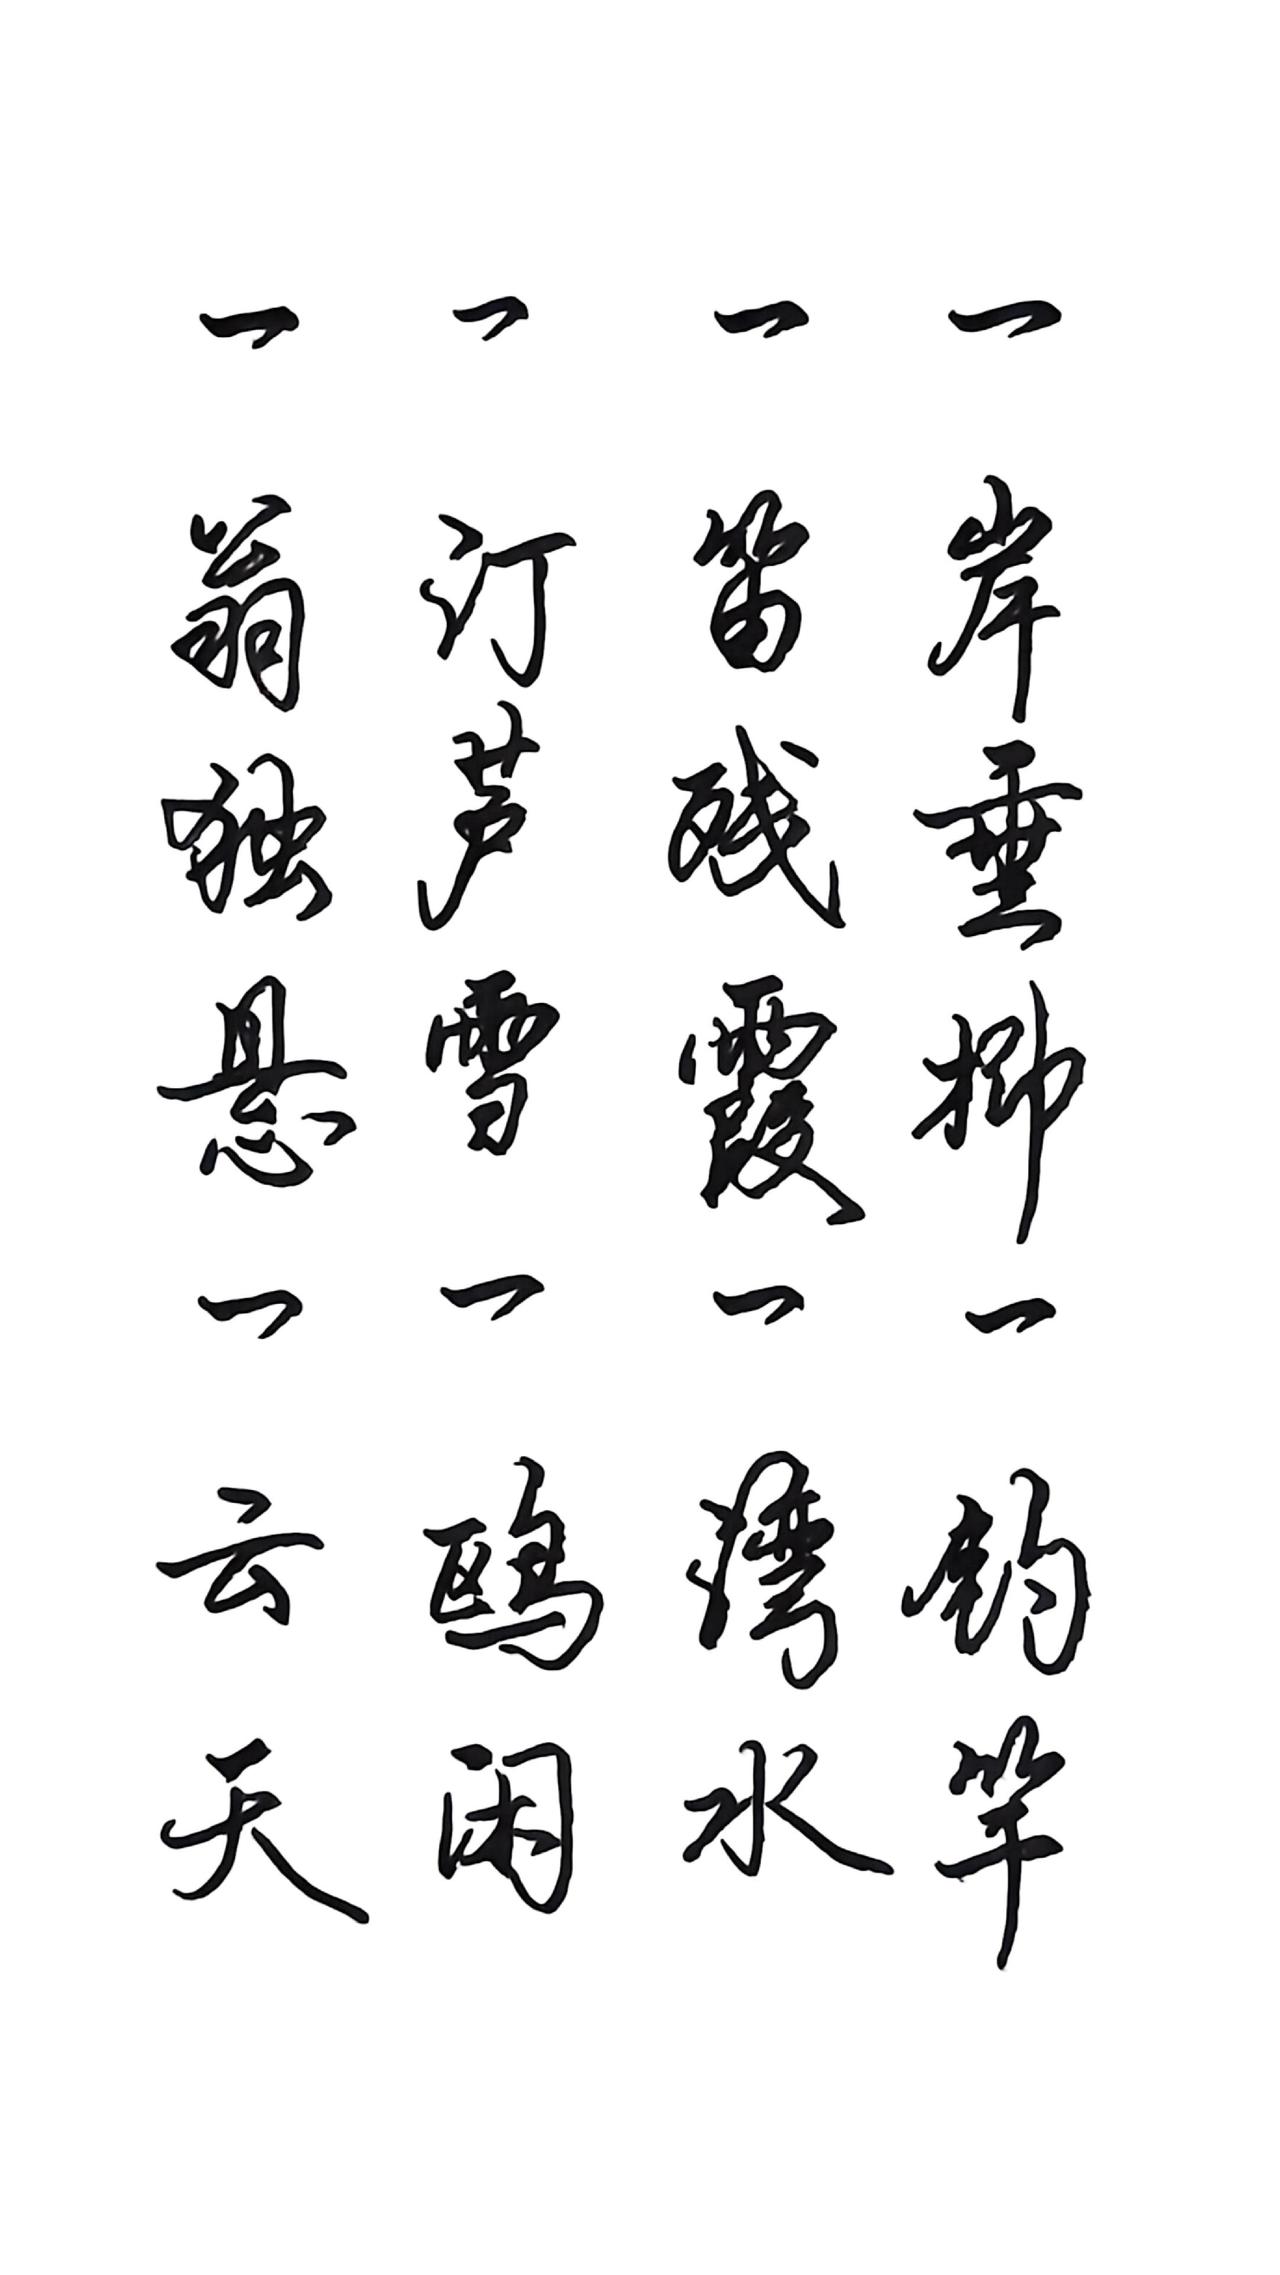 一岸垂柳一钓竿
一笛残霞一湾水
一汀芦雪一鸥闲
一翁独悬一云天